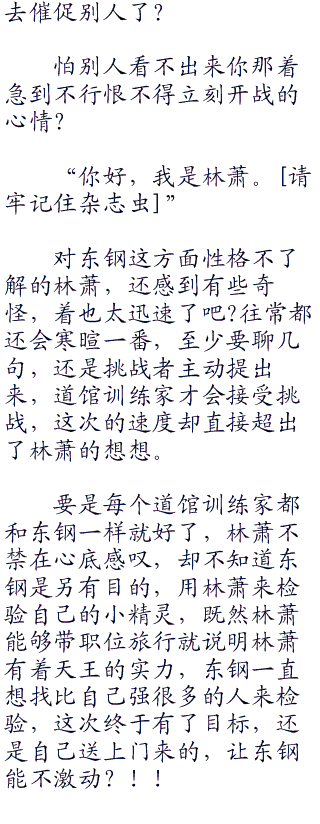 去催促别人了？
怕别人看不出来你那着
急到不行恨不得立刻开战的
心情？
“你好，我是林萧。[请
牢记住杂志虫]”
对东钢这方面性格不了
解的林萧，还感到有些奇
怪，着也太迅速了吧?往常都
还会寒暄一番，至少要聊几
句，还是挑战者主动提出
来，道馆训练家才会接受挑
战，这次的速度却直接超出
了林萧的想想。
要是每个道馆训练家都
和东钢一样就好了，林萧不
禁在心底感叹，却不知道东
钢是另有目的，用林萧来检
验自己的小精灵，既然林萧
能够带职位旅行就说明林萧
有着天王的实力，东钢一直
想找比自己强很多的人来检
验，这次终于有了目标，还
是自己送上门来的，让东钢
能不激动？！！